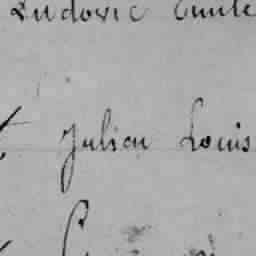 Ludovic Emile
Julien Louis